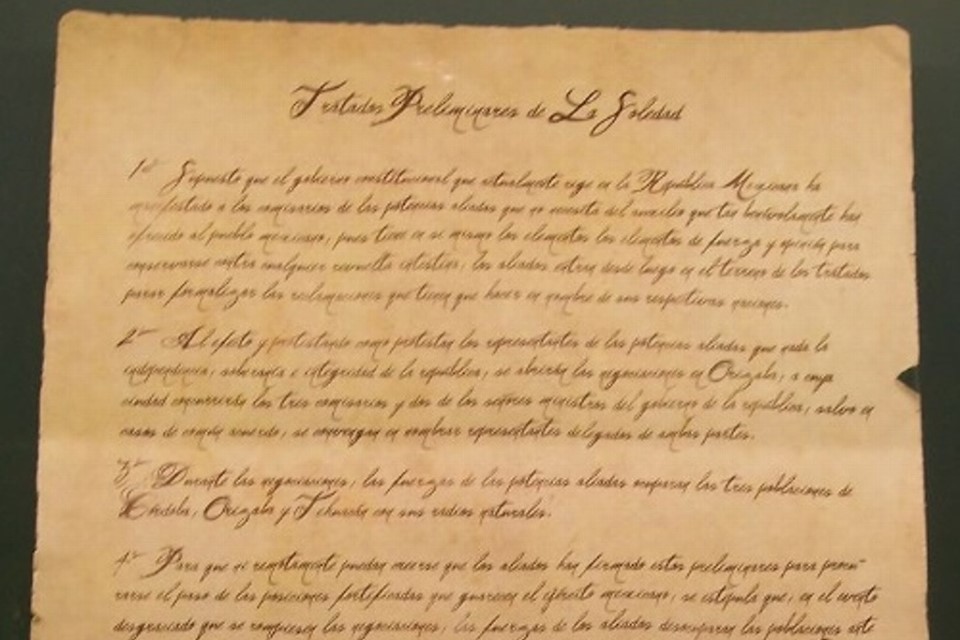 Tratados Preliminares de La Soledad
1º Supuesto que el gobierno constitucional que actualmente rige en la República Mexicana ha
manifestado a los comisarios de las potencias aliadas que no necesita del auxilio que tan benévolamente han
ofrecido al pueblo mexicano, pues tiene en si mismo los elementos los elementos de fuerza y opinión para
conservarse contra cualquier revuelta intestina, los aliados entran desde luego en el terreno de los tratados
para formalizar las reclamaciones que tienen que hacer en nombre de sus respectivas naciones.
2º Al efecto y protestando como protestan los representantes de las potencias aliadas que nada la
independencia, soberanía e integridad de la república, se abrirán las negociaciones en Orizaba, a cuya
ciudad concurrirán los tres comisarios y dos de los señores ministros del gobierno de la república, salvo en
casos de común acuerdo, se convengan en nombrar representantes delegados de ambas partes.
3º Durante las negociaciones, las fuerzas de las potencias aliadas ocuparan las tres poblaciones de
Córdoba, Orizaba y Tehuacán con sus radios naturales.
4º Para que ni remotamente puedan creerse que los aliados han firmado estos preliminares para procu-
rarse el paso de las posiciones fortificadas que guarecen el ejército mexicano, se estipula que, en el evento
desgraciado que se rompiesen las negociaciones, las fuerzas de los aliados desocuparan las poblaciones